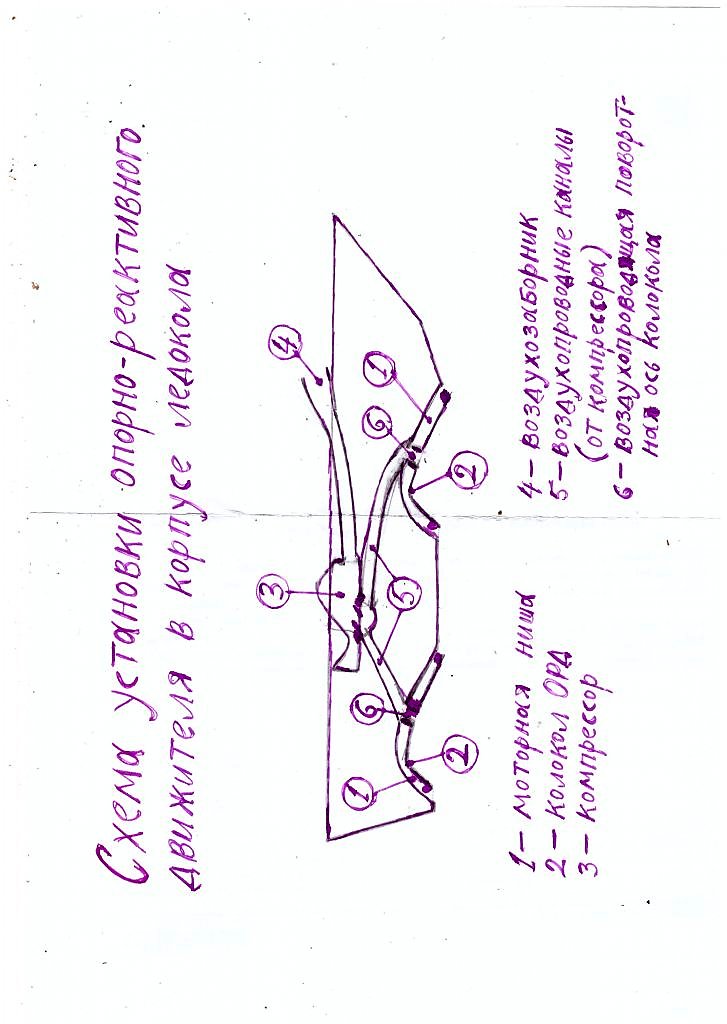 Схема установки опорно-реактивного
движителя в корпусе ледокола
4
1
6
2
3
5
6
2
1
1 – моторная ниша
2 – колокол ОРД
3 – компрессор
4 – воздухозаборник
5 – воздухопроводные каналы
(от компрессора)
6 – воздухопроводящая поворот-
ная ось колокола